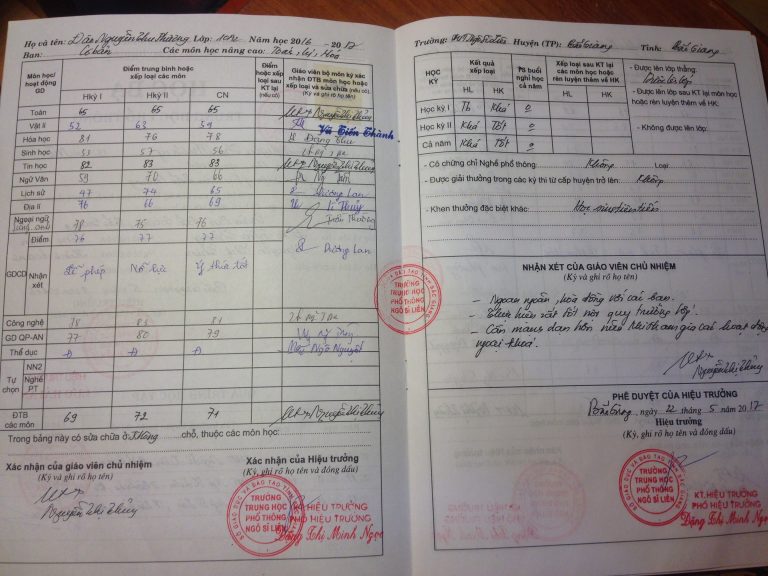 Họ và tên: Đào Nguyễn Thu Phương Lớp: 10A2 Năm học 2016 - 2017
Ban: Cơ bản Các môn học nâng cao: Toán, Lí, Hoá
Môn học/ hoạt động GD
Điểm trung bình hoặc xếp loại các môn
Điểm hoặc xếp loại sau KT lại (nếu có)
Giáo viên bộ môn ký xác nhận ĐTB môn học hoặc xếp loại và sửa chữa (nếu có).
(Ký và ghi rõ họ tên)
Hkỳ I Hkỳ II CN
Toán 65 65 65 Nguyễn Thị Thủy
Vật lí 52 63 59 Vũ Tiến Thành
Hóa học 81 76 78
Sinh học 53 57 56
Tin học 82 83 83 Nguyễn Thị Thủy
Ngữ Văn 59 70 66
Lịch sử 47 74 65 Dương Lan
Địa lí 76 66 69 Vi Thủy
Ngoại ngữ 78 75 76
GDCD
Điểm 76 77 77 Dương Lan
Nhận xét Lễ phép Nỗ lực Ý thức tốt
Công nghệ 78 83 81
GD QP-AN 77 80 79
Thể dục Đ Đ Đ Ngô Nguyệt
Tự chọn
NN2
Nghề PT
ĐTB các môn 69 72 71 Nguyễn Thị Thủy
Trong bảng này có sửa chữa ở: Không chỗ, thuộc các môn học:
Xác nhận của giáo viên chủ nhiệm
(Ký, ghi rõ họ tên)
Nguyễn Thị Thủy
Xác nhận của Hiệu trưởng
(Ký, ghi rõ họ tên và đóng dấu)
SỞ GIÁO DỤC VÀ ĐÀO TẠO TỈNH BẮC GIANG
TRƯỜNG
TRUNG HỌC
PHỔ THÔNG
NGÔ SĨ LIÊN
KT.HIỆU TRƯỞNG
PHÓ HIỆU TRƯỞNG
Đặng Thị Minh Ngọc
Trường: THPT Ngô Sĩ Liên Huyện (TP): Bắc Giang Tỉnh: Bắc Giang
HỌC KỲ
Kết quả xếp loại
TS buổi nghỉ học cả năm
Xếp loại sau KT lại các môn học hoặc rèn luyện thêm về HK
HL HK HL HK
Học kỳ I Tb Khá 0
Học kỳ II Khá Tốt 0
Cả năm Khá Tốt 0
- Được lên lớp thẳng:
Được lên lớp
- Được lên lớp sau KT lại môn học hoặc rèn luyện thêm về HK:
- Không được lên lớp:
- Có chứng chỉ Nghề phổ thông: Không Loại
- Được giải thưởng trong các kỳ thi từ cấp huyện trở lên: Không
- Khen thưởng đặc biệt khác: Học sinh tiên tiến
SỞ GIÁO DỤC VÀ ĐÀO TẠO TỈNH BẮC GIANG
TRƯỜNG
TRUNG HỌC
PHỔ THÔNG
NGÔ SĨ LIÊN
NHẬN XÉT CỦA GIÁO VIÊN CHỦ NHIỆM
(Ký và ghi rõ họ tên)
- Ngoan ngoãn, hòa đồng với các bạn.
- Thực hiện rất tốt nội quy trường lớp.
- Cần mạnh dạn hơn nữa khi tham gia các hoạt động
ngoại khoá.
Nguyễn Thị Thủy
PHÊ DUYỆT CỦA HIỆU TRƯỞNG
Bắc Giang, ngày 22 tháng 5 năm 2017
Hiệu trưởng
(Ký, ghi rõ họ tên và đóng dấu)
SỞ GIÁO DỤC VÀ ĐÀO TẠO TỈNH BẮC GIANG
TRƯỜNG
TRUNG HỌC
PHỔ THÔNG
NGÔ SĨ LIÊN
KT.HIỆU TRƯỞNG
PHÓ HIỆU TRƯỞNG
Đặng Thị Minh Ngọc